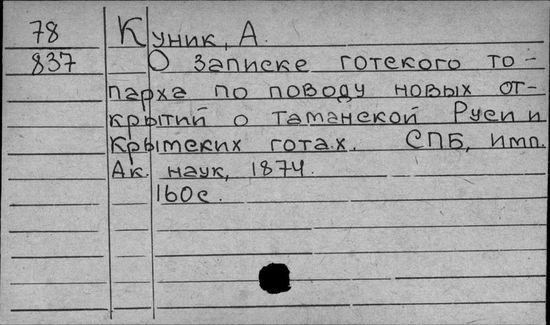 78 Куник, А.
837 О записке готского то-
парха по поводу новых от-
крытий о Таманской Руси и
Крымских готах. СПБ, имп.
Ак. наук, 1874.
160с.